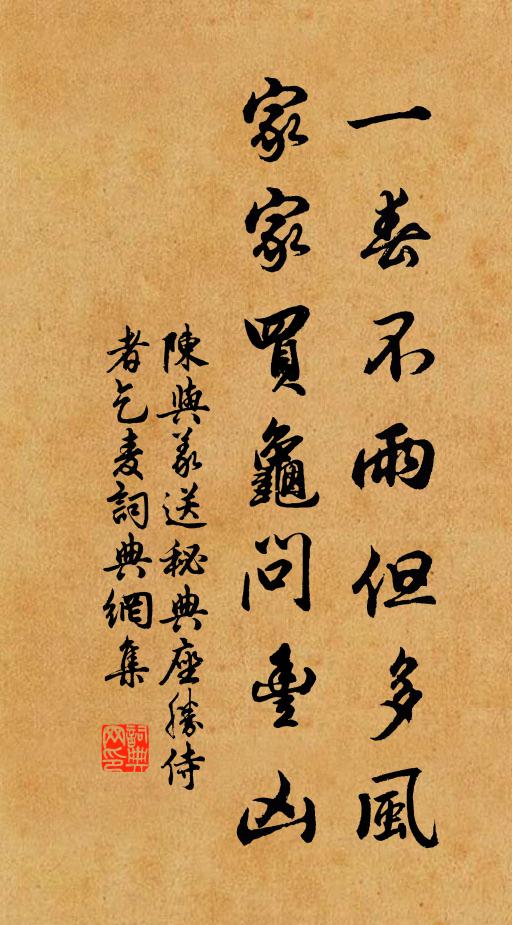 一春不雨但多風
家家買龜問豐凶
陳與義送秘典座勝侍
者乞麦詞典網集
詞典
网印